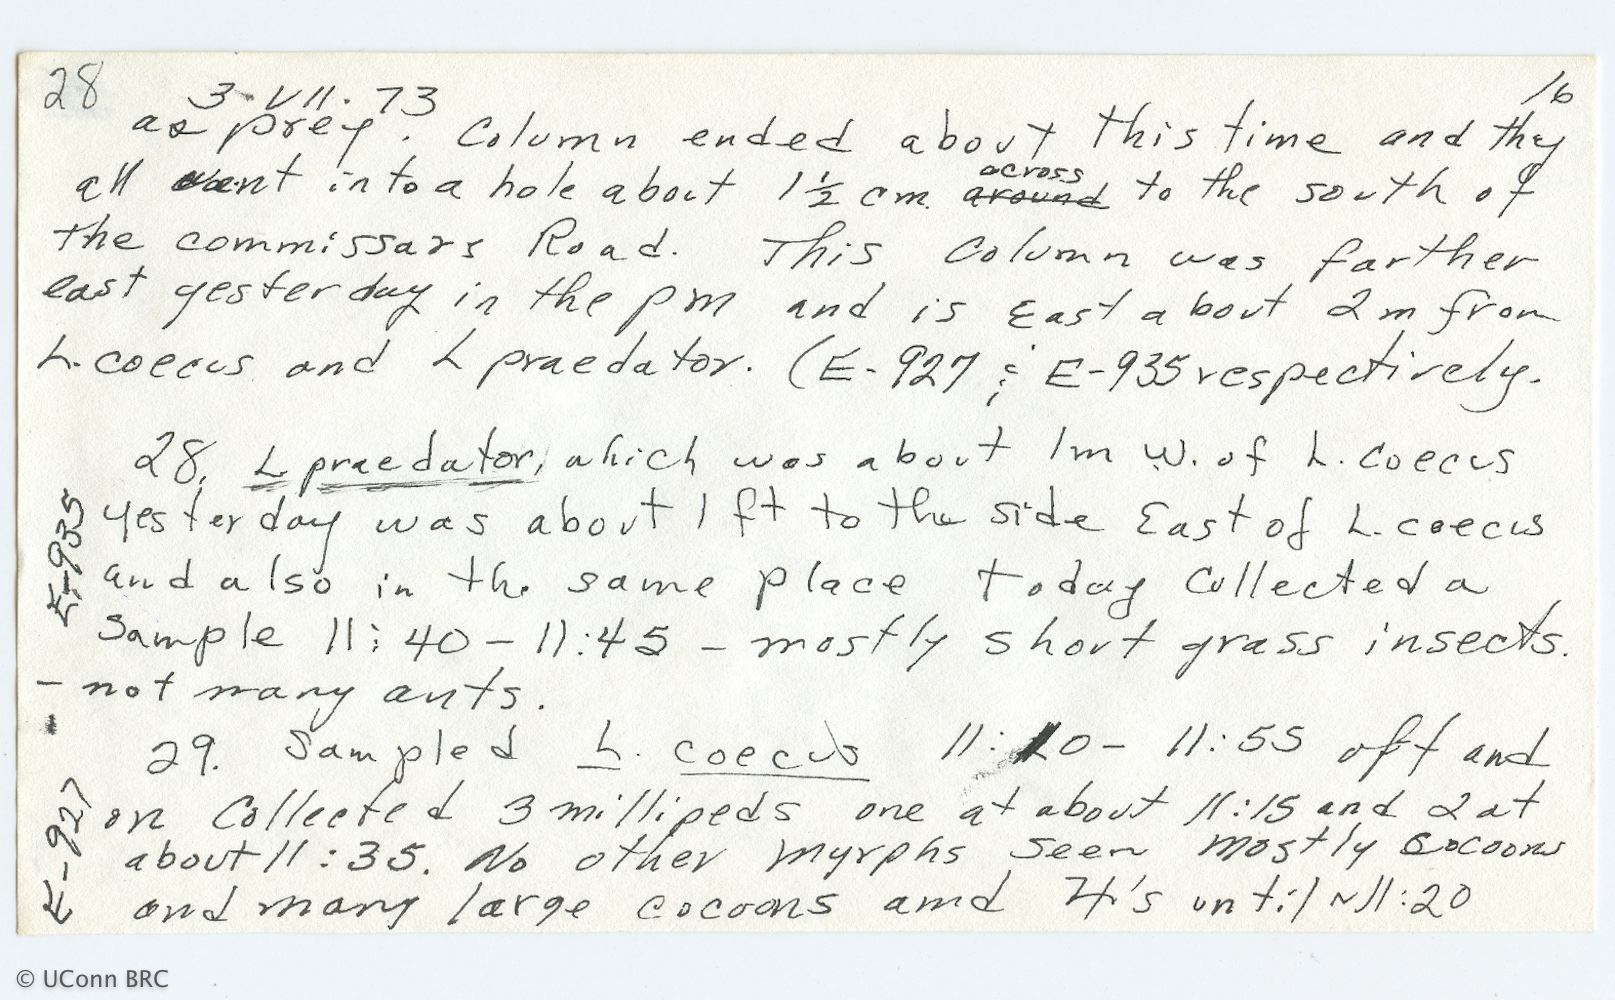 28 3-VII-73 16
as prey. Column ended about this time and they
all went into a hole about 1½ cm. across around to the south of
the commissars Road. This Column was farther
east yesterday in the pm and is East about 2m from
L. coecus and L praedator. (E-927 & E-935 respectively.
28. L praedator, which was about 1m W. of L. coecus
yesterday was about 1 ft to the side East of L. coecus
and also in the same place today Collected a
Sample 11:40-11:45 - mostly short grass insects.
- not many ants.
29. Sampled L. coecus 11:10- 11:55 off and
on Collected 3 millipeds one at about 11:15 and 2 at
about 11:35. No other myrphs seen mostly cocoons
and many large cocoons amd until ~11:20
E-935
E-927
© UConn BRC